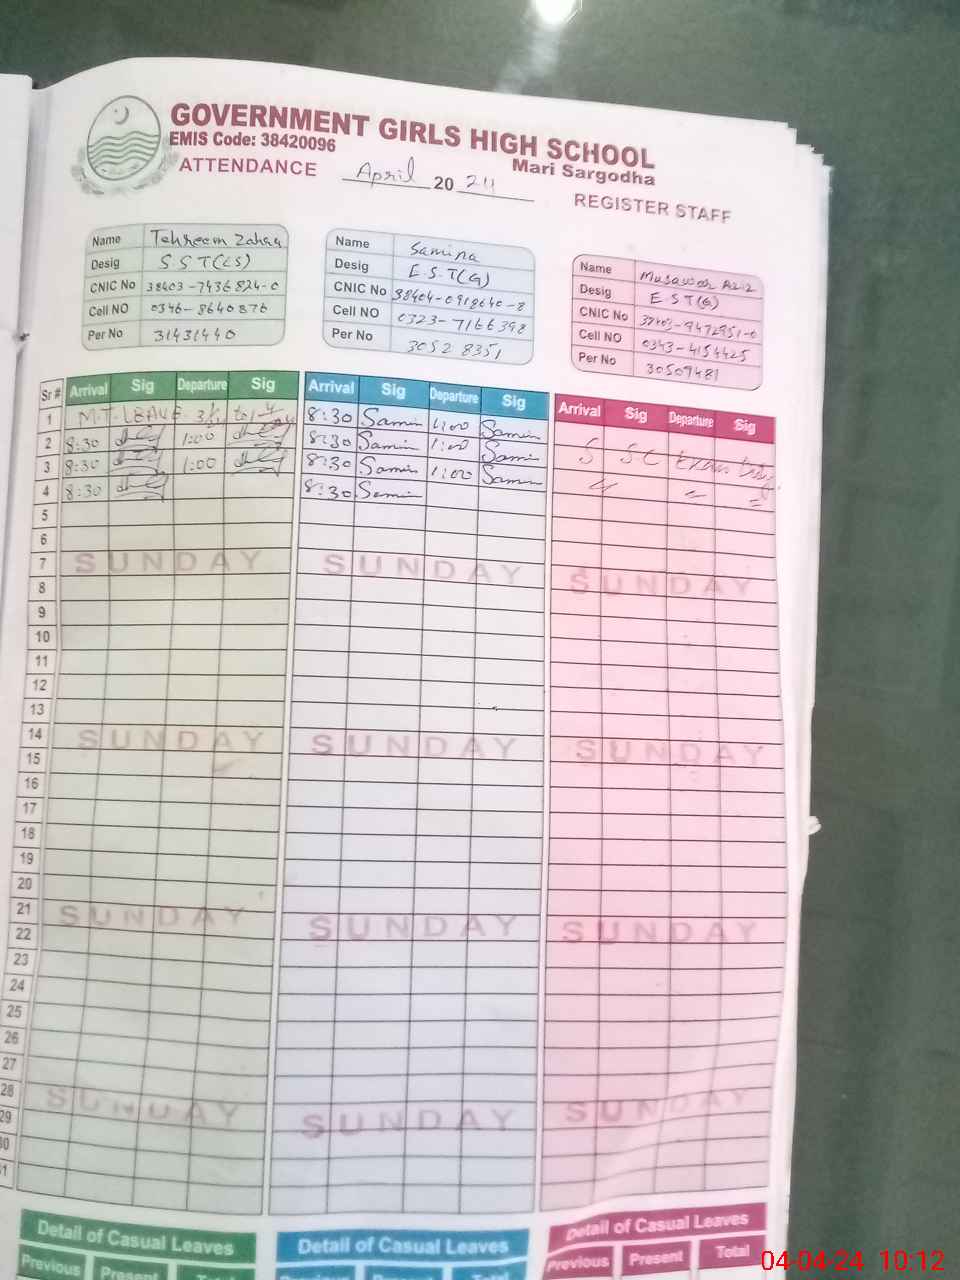 GOVERNMENT GIRLS HIGH SCHOOL
EMIS Code: 38420096
Mari Sargodha
ATTENDANCE April 2024
REGISTER STAFF
Name Tehreem Zahra
Desig S S T (LS)
CNIC No 38403-7436824-0
Cell NO 0346-8640876
Per No 31431440
Name Samina
Desig E.S.T(G)
CNIC No 38404-0918640-8
Cell NO 0323-7166398
Per No 30528351
Name Musawar Aziz
Desig E S T (G)
CNIC No 38403-9472951-0
Cell NO 0343-4154425
Per No 30509481
Sr # Arrival Sig Departure Sig Arrival Sig Departure Sig Arrival Sig Departure Sig
1 M.T. LEAVE 8:30 Samin 1:00 Samin
2 8:30 1:00 8:30 Samin 1:00 Samin S SC Exam Duty
3 8:30 1:00 8:30 Samin 1:00 Samin
4 8:30 8:30 Samin
5
6
7 SUNDAY SUNDAY SUNDAY
8
9
10
11
12
13
14 SUNDAY SUNDAY SUNDAY
15
16
17
18
19
20
21 SUNDAY SUNDAY SUNDAY
22
23
24
25
26
27
28 SUNDAY SUNDAY SUNDAY
29
30
31
Detail of Casual Leaves Detail of Casual Leaves Detail of Casual Leaves
Previous Present Total Previous Present Total Previous Present Total
04-04-24 10:12